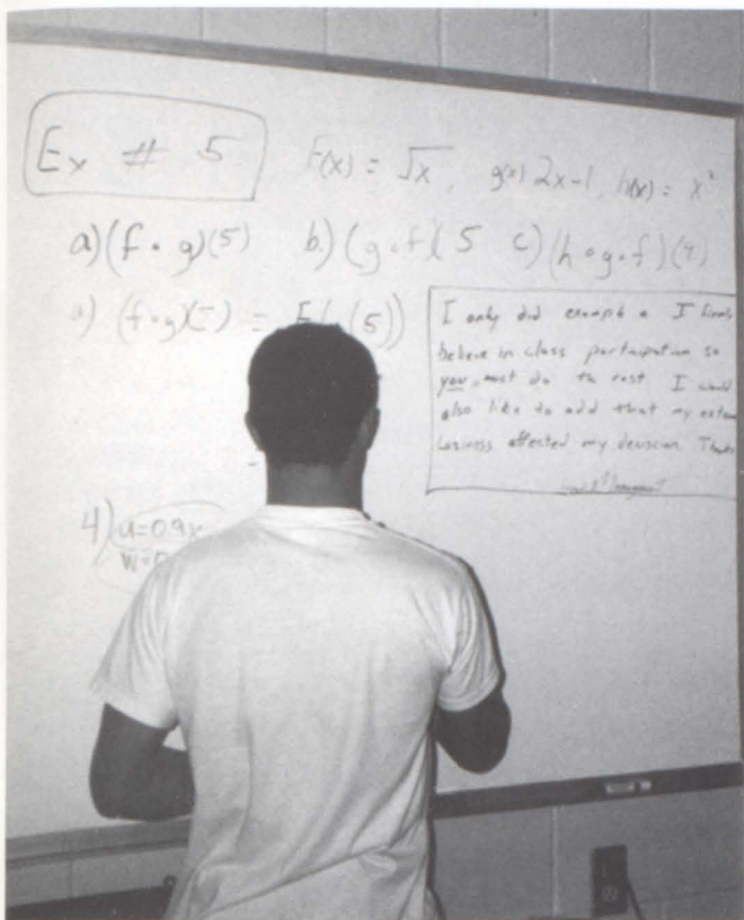 Ex # 5
F(x) = √x, g(x) 2x-1, h(x) = x²
a) (f∘g)(5) b.) (g∘f)(5 c) (h∘g∘f)(9)
(f∘g)(5) = F(g(5))
I only did example a I firmly
believe in class participation so
you must do the rest I would
also like to add that my
laziness affected my decision.
4) u=0.9x
w=